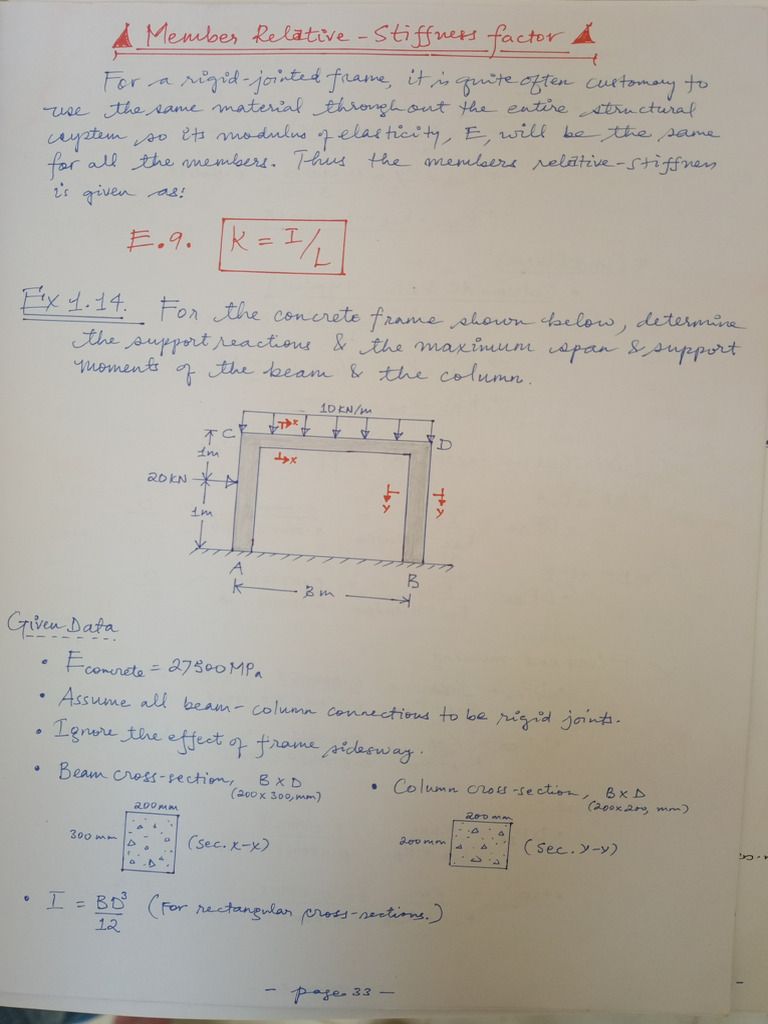 Member Relative-Stiffness factor
For a rigid-jointed frame, it is quite often customary to
use the same material throughout the entire structural
system, so its modulus of elasticity, E, will be the same
for all the members. Thus the members relative-stiffness
is given as:
E.9. K = I/L
Ex 1.14. For the concrete frame shown below, determine
the support reactions & the maximum span & support
moments of the beam & the column.
10KN/m
C
x
D
1m
x
20KN
y
y
1m
A
B
3m
Given Data
• Econcrete = 27500MPa
• Assume all beam-column connections to be rigid joints.
• Ignore the effect of frame sidesway.
• Beam cross-section, BXD
(200x300,mm)
• Column cross-section, BXD
(200x200, mm)
200mm
300mm
(Sec. x-x)
200mm
200mm
(Sec. y-y)
• I = BD³/12 (For rectangular cross-sections.)
- page 33 -